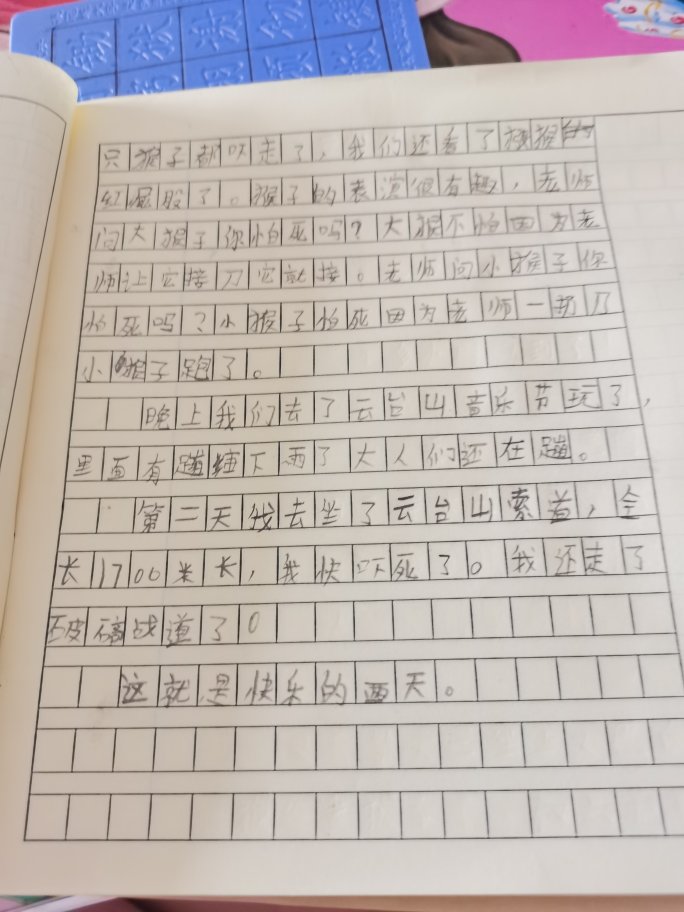 只猴子都吓走了，我们还看了猕猴的
红屁股了。猴子的表演很有趣，老师
问大猴子你怕死吗？大猴不怕因为老
师让它接刀它就接。老师问小猴子你
怕死吗？小猴子怕死因为老师一扔刀
小猴子跑了。
晚上我们去了云台山音乐节玩了，
里面有蹦，下雨了大人们还在蹦。
第二天我去坐了云台山索道，全
长1700米长，我快吓死了。我还走了
玻璃战道了。
这就是快乐的两天。